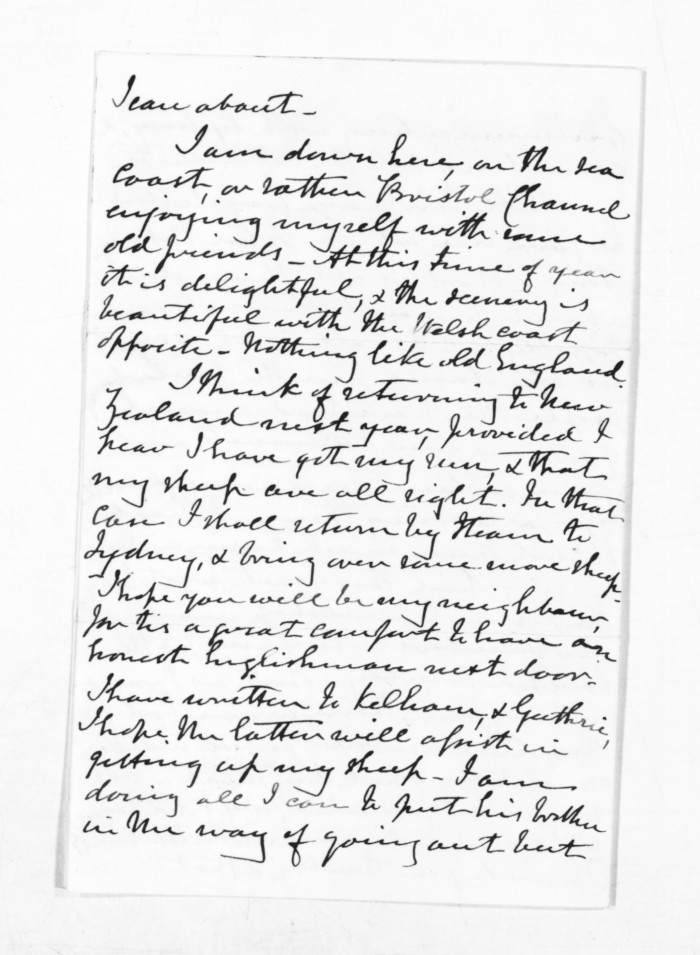 I can about -
I am down here, on the sea
coast, or rather Bristol Channel
enjoying myself with some
old friends - At this time of year
it is delightful, & the scenery is
beautiful with the Welsh coast
opposite - Nothing like old England.
I think of returning to New
Zealand next year, provided I
hear I have got my run, & that
my sheep are all right. In that
case I shall return by Steam to
Sydney, & bring over some more sheep -
I hope you will be my neighbour,
for tis a great comfort to have an
honest Englishman next door -
I have written to Kelham, & Guthrie,
I hope the latter will assist in
getting up my sheep - I am
doing all I can to put his brother
in the way of going out but